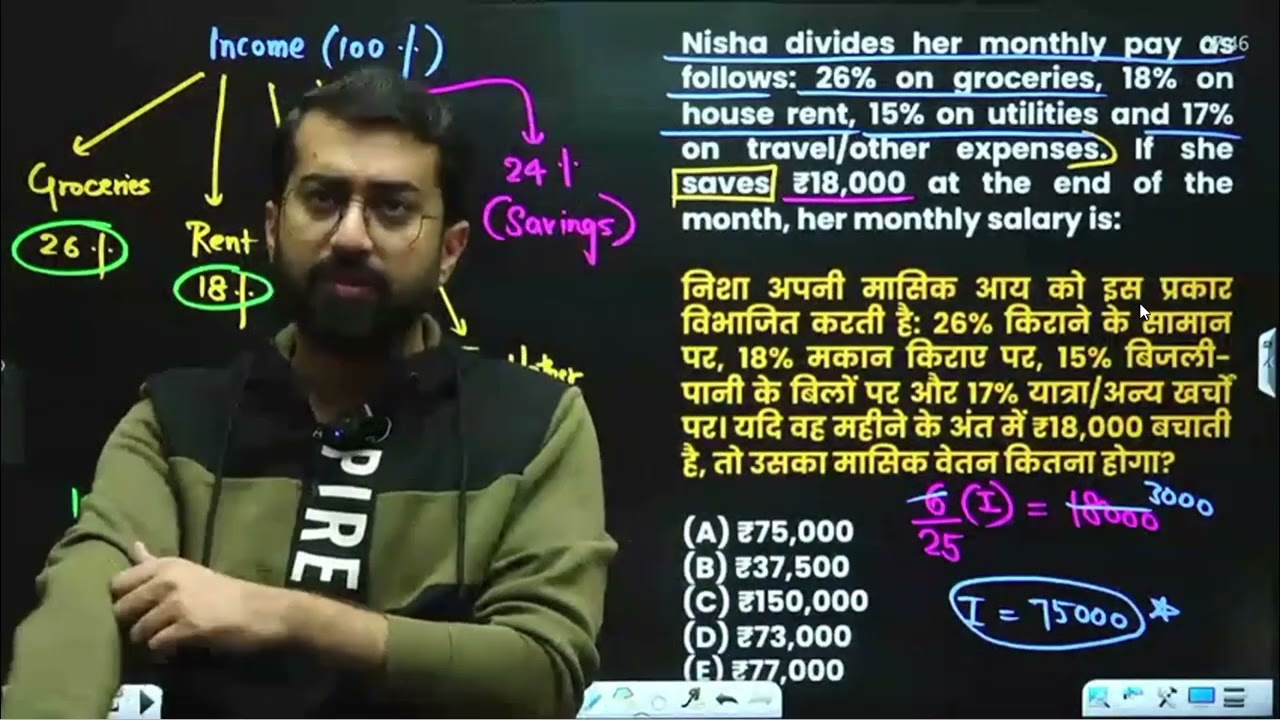 Income (100%)
Groceries
26%
Rent
18%
24%
(Savings)
other
PIRE
Nisha divides her monthly pay as
follows: 26% on groceries, 18% on
house rent, 15% on utilities and 17%
on travel/other expenses. If she
saves ₹18,000 at the end of the
month, her monthly salary is:
निशा अपनी मासिक आय को इस प्रकार
विभाजित करती है: 26% किराने के सामान
पर, 18% मकान किराए पर, 15% बिजली-
पानी के बिलों पर और 17% यात्रा/अन्य खर्चों
पर। यदि वह महीने के अंत में ₹18,000 बचाती
है, तो उसका मासिक वेतन कितना होगा?
6/25 (I) = 18000 3000
I = 75000
(A) ₹75,000
(B) ₹37,500
(C) ₹150,000
(D) ₹73,000
(E) ₹77,000